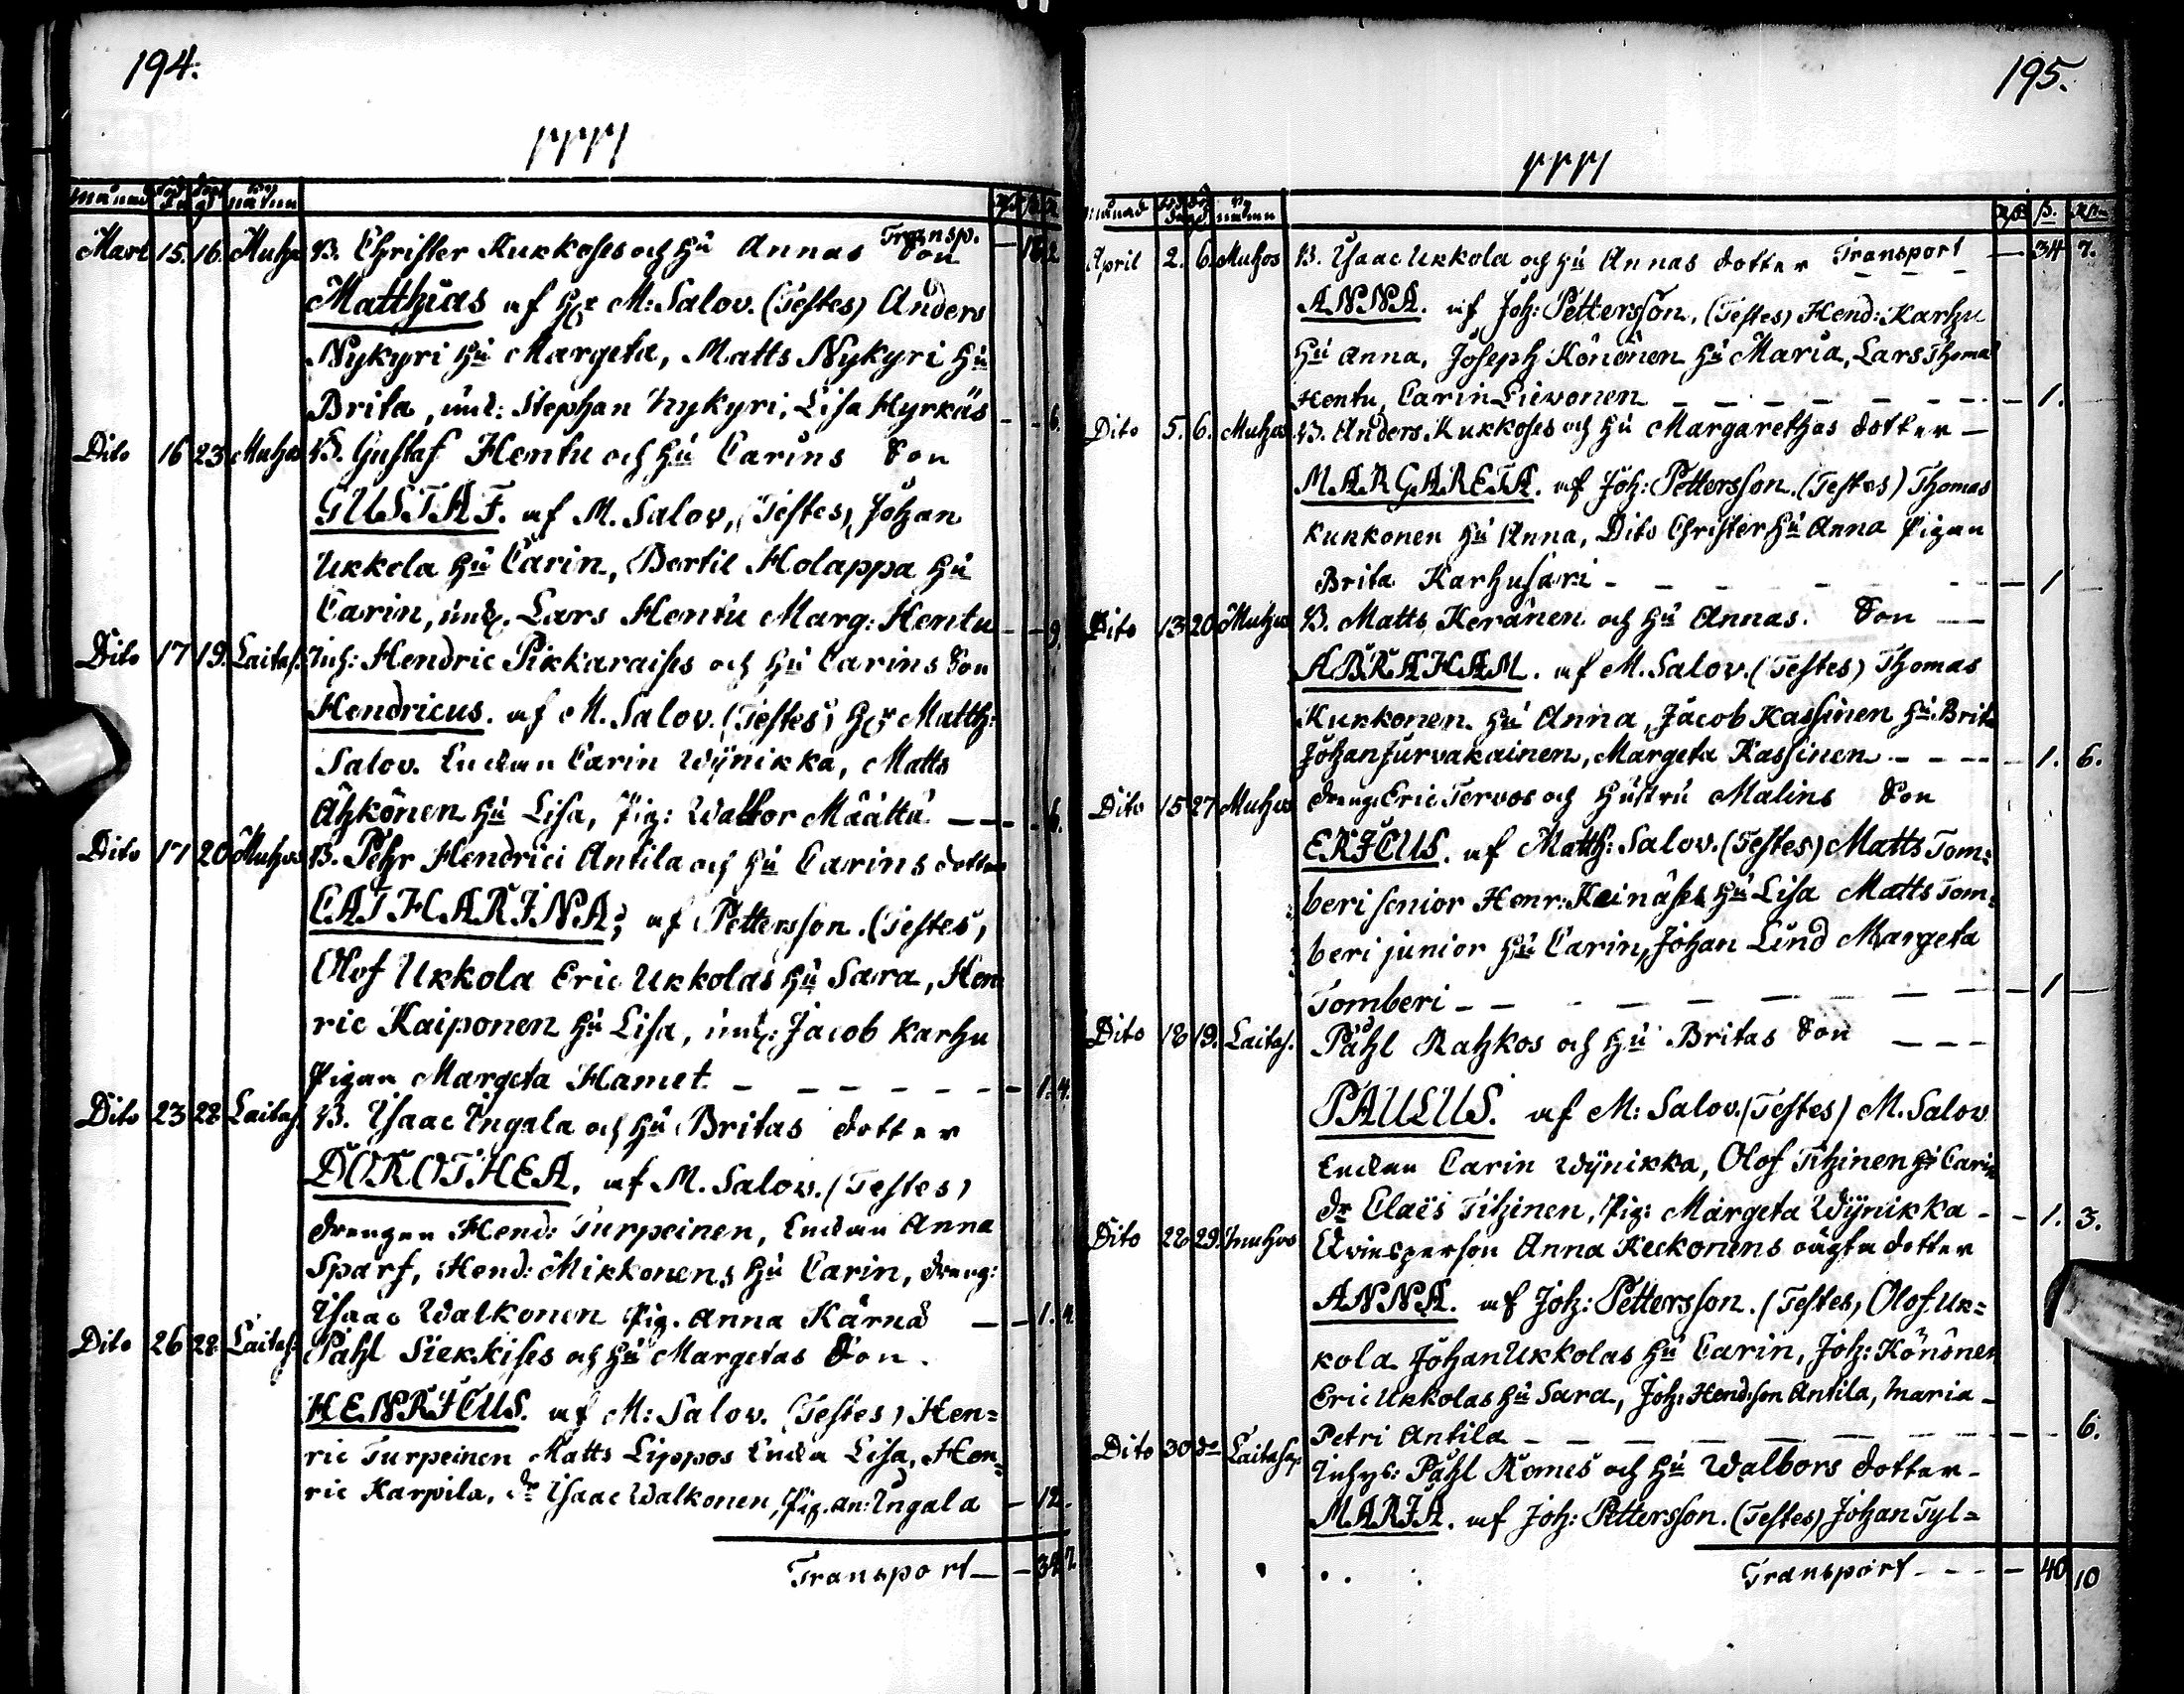 194:
1777
Månad Föd. Döpt By namn
Mart 15. 16. Muhos B. Christer Kukkoses och hu Annas Son Transp. — 18 2
Matthias af Hr M: Salov. (Testes) Anders
Nykyri hu Margeta, Matts Nykyri hu
Brita, und: Stephan Nykyri, Lisa Hyrkäs - - 6.
Dito 16 23 Muhos B. Gustaf Hentu och hu Carins Son
GUSTAF. af M. Salov, (Testes) Johan
Ukkola hu Carin, Bertil Holappa hu
Carin, und. Lars Hentu Marg: Hentu - - 9.
Dito 17 19. Laitas. Inh: Hendric Pikkaraises och hu Carins Son
Hendricus. af M. Salov. (Testes) Hr Matth:
Salov. Enckan Carin Wÿnikka, Matts
Ähkönen hu Lisa, Pig: Walbor Määttä — - - 6.
Dito 17 20 Muhos B. Pehr Hendrici Antila och hu Carins dotter
CATHARINA; af Pettersson. (Testes)
Olof Ukkola Eric Ukkolas hu Sara, Hen
ric Kaiponen hu Lisa, und: Jacob Karhu
Pigan Margeta Hamet. - - - - - - - 1. 4.
Dito 23 28 Laitas. B. Isaac Ingala och hu Britas dotter
DOROTHEA. af M. Salov. (Testes)
drengen Hend: Turpeinen, Enckan Anna
Sparf, Hend: Mikkonens hu Carin, dreng:
Isaac Walkonen Pig. Anna Kärnä — - 1. 4.
Dito 26 28 Laitas. Påhl Siekkises och hu Margetas Son.
HENRICUS. af M: Salov. (Testes) Hen=
ric Turpeinen Matts Lippos Encka Lisa, Hen=
ric Karpila, dr Isaac Walkonen, Pig. An: Ingala - 12.
Transport — - 34 7.
195.
1777
Månad Född Döpt By namn ß.
April 2. 6. Muhos B. Isaac Ukkola och hu Annas dotter Transport — 34 7.
ANNA. af Joh: Pettersson, (Testes) Hend: Karhu
hu Anna, Joseph Könönen hu Maria, Lars Thomas
Hentu, Carin Lievonen - - - - - - - - 1.
Dito 5. 6. Muhos B. Anders Kukkoses och hu Margarethas dotter —
MARGARETA. af Joh: Pettersson. (Testes) Thomas
Kukkonen hu Anna, Dito Christer hu Anna Pigan
Brita Karhusari - - - - - - — 1 —
Dito 13 20 Muhos B. Matts Keränen och hu Annas. Son —
ABRAHAM. af M. Salov. (Testes) Thomas
Kukkonen hu Anna, Jacob Kassinen hu Brita
Johan Jurvakainen, Margeta Kassinen - - - - 1. 6.
Dito 15 27 Muhos dreng: Eric Tervos och Hustru Malins Son
ERICUS. af Matth: Salov. (Testes) Matts Tom:
beri senior Henr: Heinäses hu Lisa Matts Tom:
beri junior hu Carin, Johan Lund Margeta
Tomberi - - - - - - - - — 1 —
Dito 18 19. Laitas. Påhl Rahkos och hu Britas Son — - -
PAULUS. af M: Salov. (Testes) M. Salov
Enckan Carin Wÿnikka, Olof Tihinen hu Carin
dr Claës Tihinen, Pig: Margeta Wÿnikka - - 1. 3.
Dito 28 29. Muhos Qvinsperson Anna Keckonens oägta dotter
ANNA. af Joh: Pettersson. (Testes) Olof Uk=
kola Johan Ukkolas hu Carin, Joh: Könönen
Eric Ukkolas hu Sara, Joh: Hendsson Antila, Maria -
Petri Antila - - - - - - - - - 6.
Dito 30 do Laitasa: Inhys: Påhl Komes och hu Walbors dotter -
MARIA. af Joh: Pettersson. (Testes) Johan Tyl=
Transport - - - - 40 10